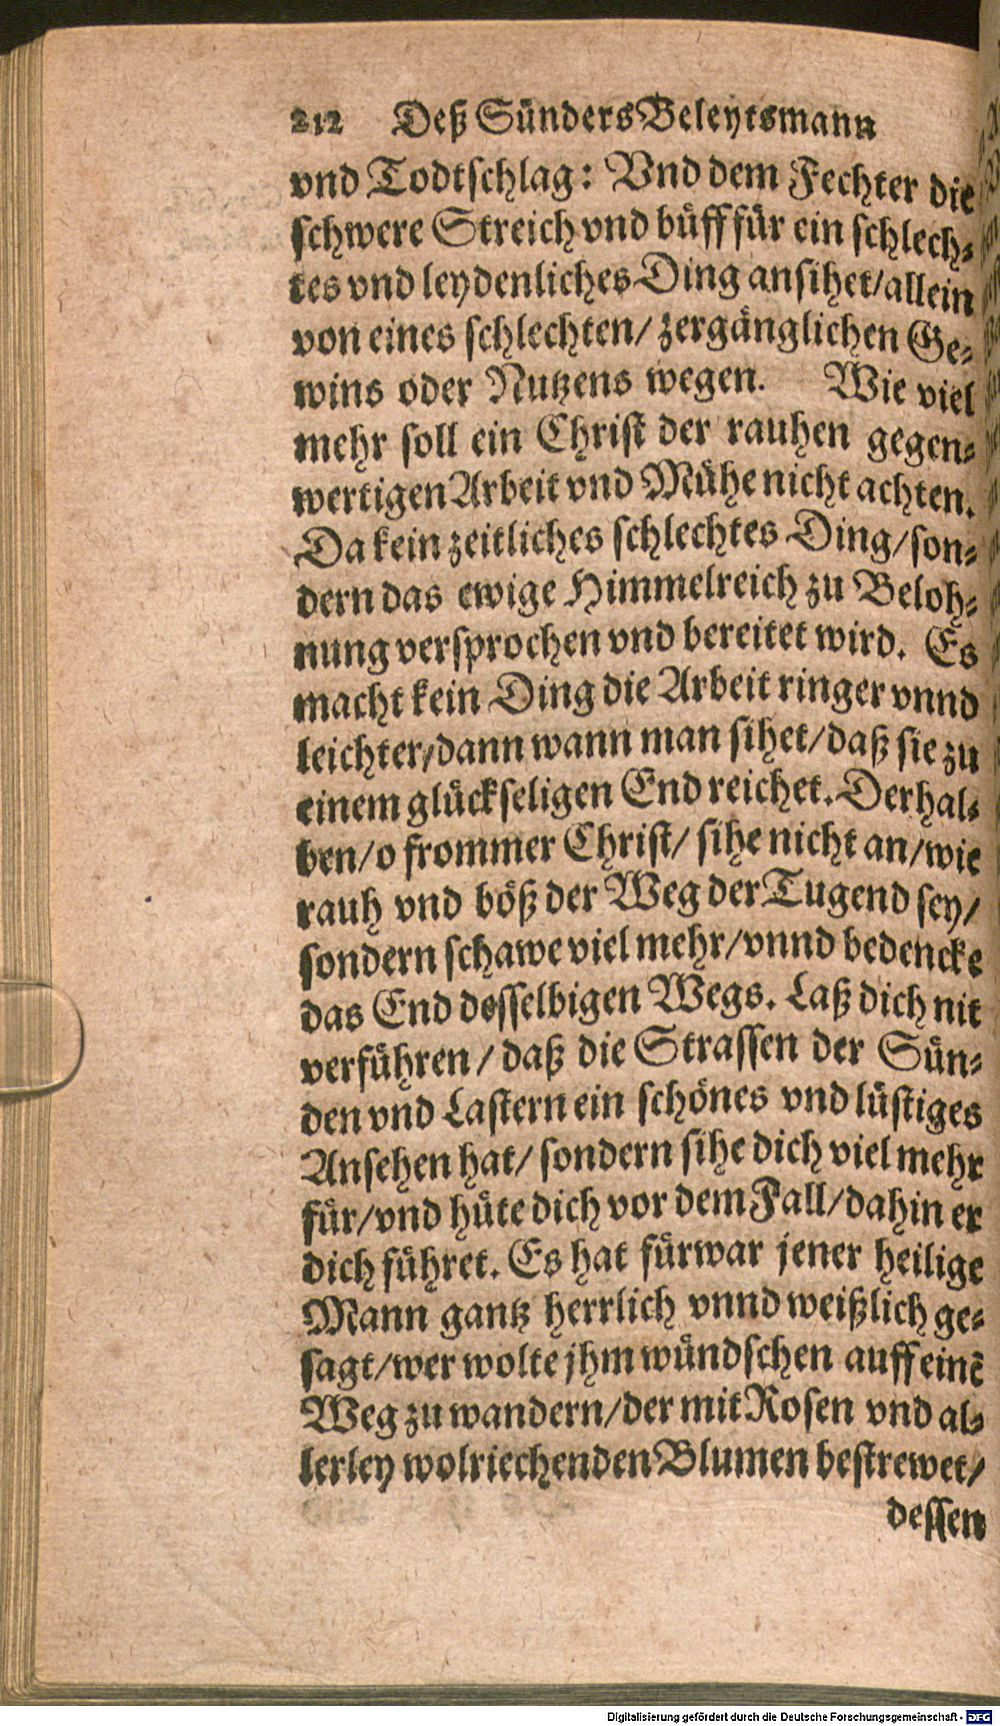 212 Deß Sünders Beleytsmann
vnd Todtschlag: Vnd dem Fechter die
schwere Streich vnd büff für ein schlech-
tes vnd leydenliches Ding ansihet/allein
von eines schlechten/ zergänglichen Ge-
wins oder Nutzens wegen. Wie viel
mehr soll ein Christ der rauhen gegen-
wertigen Arbeit vnd Mühe nicht achten.
Da kein zeitliches schlechtes Ding/son-
dern das ewige Himmelreich zu Beloh-
nung versprochen vnd bereitet wird. Es
macht kein Ding die Arbeit ringer vnnd
leichter/dann wann man sihet/daß sie zu
einem glückseligen End reichet. Derhal-
ben/o frommer Christ/ sihe nicht an/wie
rauh vnd böß der Weg der Tugend sey/
sondern schawe viel mehr/vnnd bedencke
das End desselbigen Wegs. Laß dich nit
verführen/ daß die Strassen der Sün-
den vnd Lastern ein schönes vnd lüstiges
Ansehen hat/ sondern sihe dich viel mehr
für/vnd hüte dich vor dem Fall/dahin er
dich führet. Es hat fürwar jener heilige
Mann gantz herrlich vnnd weißlich ge-
sagt/wer wolte jhm wündschen auff einẽ
Weg zu wandern/der mit Rosen vnd al-
lerley wolriechenden Blumen bestrewet/
dessen
Digitalisierung gefördert durch die Deutsche Forschungsgemeinschaft - DFG